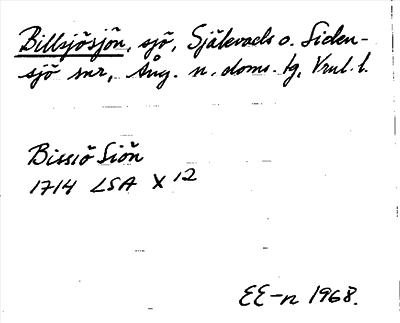 Billsjösjön, sjö, Själevads o. Siden-
sjö snr, Ång. n. doms. tg, Vnrl. l.
Bissiö Siön
1714 LSA X 12
EE-n 1968.